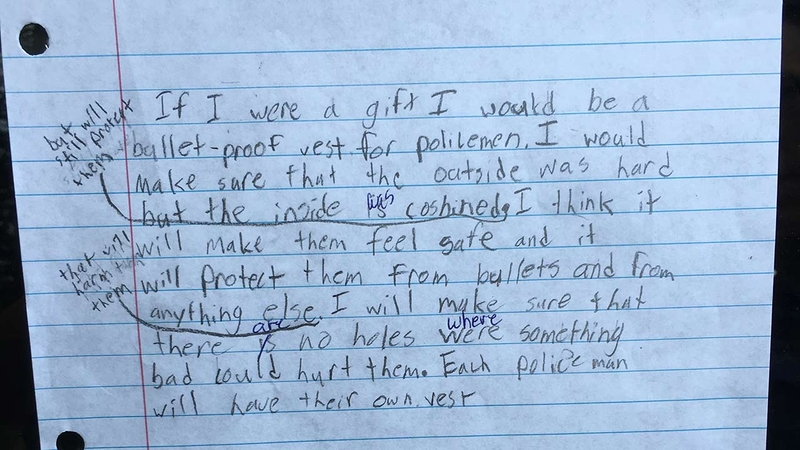 If I were a gift I would be a
but
still will
protect
them
bullet-proof vest for policemen. I would
make sure that the outside was hard
but the inside is coshined, I think it
will make them feel safe and it
that will
harm
them
will protect them from bullets and from
anything else. I will make sure that
are
where
there is no holes were something
bad could hurt them. Each police man
will have their own vest